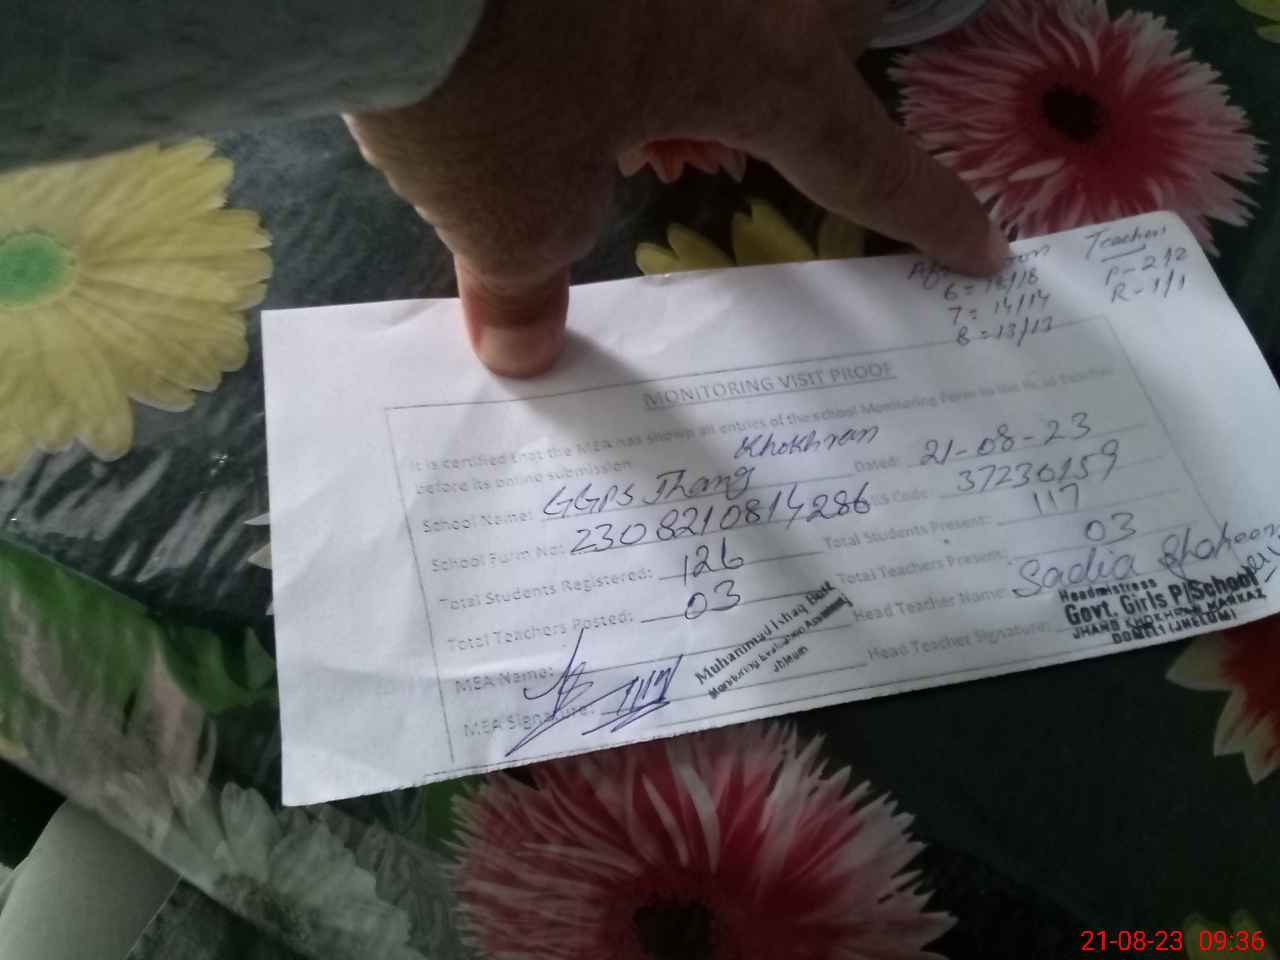 Teachers
6 = 18/18
P-2 12
7 = 14/14
R-1/1
8 = 13/13
MONITORING VISIT PROOF
It is certified that the MEA has shown all entries of the school Monitoring Form to the Head Teacher
before its online submission
Khokhran
School Name: GGPS Jhang Dated: 21-08-23
School Form No: 2308210814286 Code: 37230159
Total Students Registered: 126 Total Students Present: 117
Total Teachers Posted: 03 Total Teachers Present: 03
MEA Name: Head Teacher Name: Sadia Shaheen
MEA Signature: Head Teacher Signature:
Muhammad Ishaq Butt
Monitoring Evaluation Assistant
Jhelum
Headmistress
Govt. Girls P/School
JHANG KHOKHRAN MARKAZ
DOMELI (JHELUM)
21-08-23 09:36